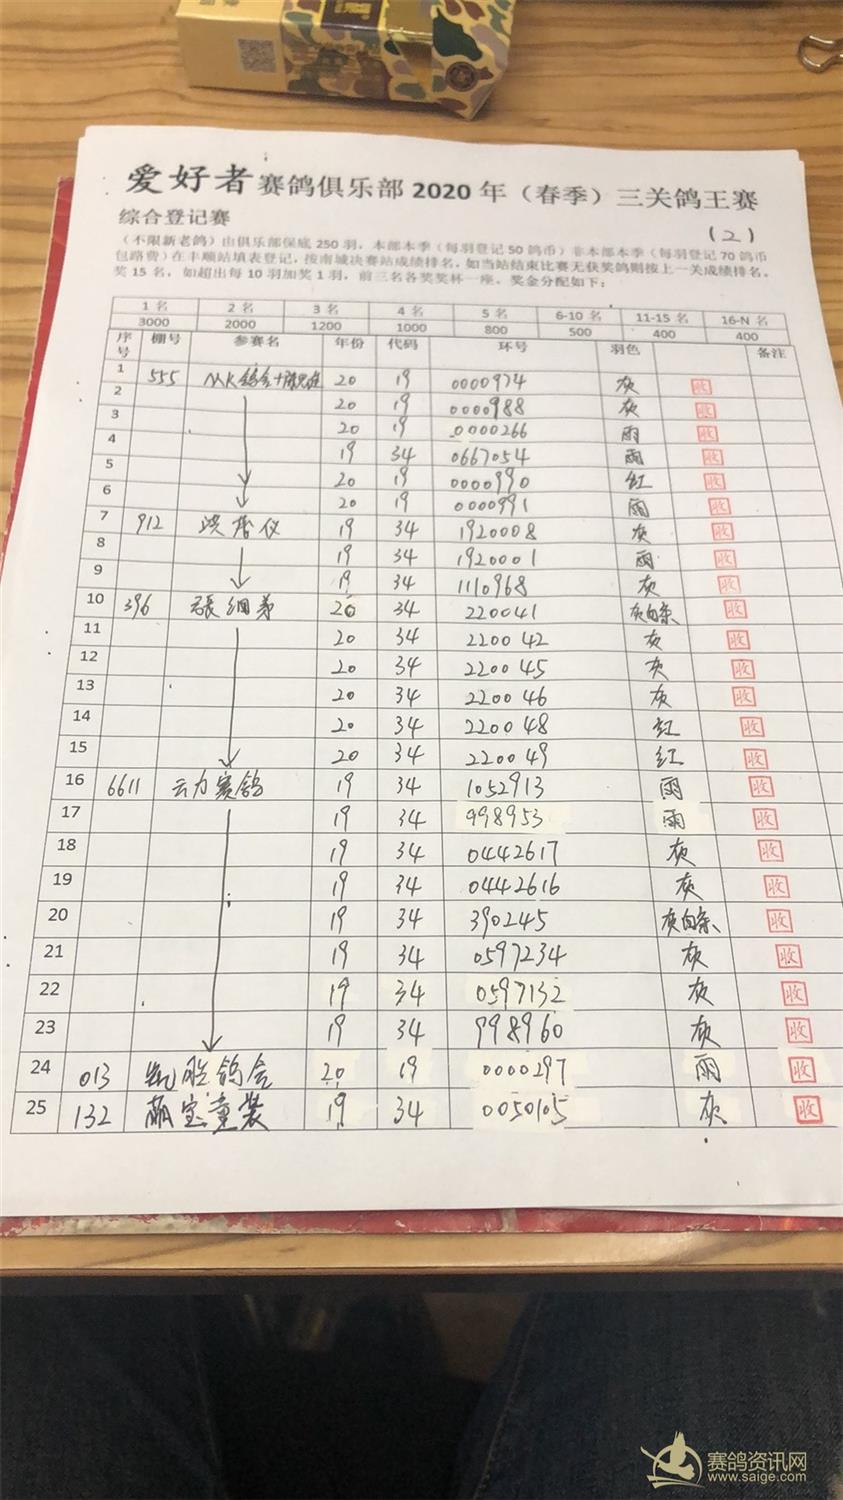 爱好者赛鸽俱乐部2020年（春季）三关鸽王赛
综合登记赛
(2)
（不限新老鸽）由俱乐部保底250羽，本部本季（每羽登记50鸽币）非本部本季（每羽登记70鸽币
包路费）在丰顺站填表登记，按南城决赛站成绩排名，如当站结束比赛无获奖鸽则按上一关成绩排名。
奖15名，如超出每10羽加奖1羽，前三名各奖奖杯一座。奖金分配如下：
1名 2名 3名 4名 5名 6-10名 11-15名 16-N名
3000 2000 1200 1000 800 500 400 400
序号 棚号 参赛名 年份 代码 环号 羽色 备注
1 555 20 19 0000974 灰 收
2 20 19 0000988 灰 收
3 20 19 0000266 雨 收
4 19 34 0667054 雨 收
5 20 19 0000990 红 收
6 20 19 0000991 雨 收
7 912 19 34 1920008 灰 收
8 19 34 1920001 雨 收
9 19 34 1110968 灰 收
10 396 張细弟 20 34 220041 灰白条 收
11 20 34 220042 灰 收
12 20 34 220045 灰 收
13 20 34 220046 灰 收
14 20 34 220048 红 收
15 20 34 220049 红 收
16 6611 云力赛鸽 19 34 1052913 雨 收
17 19 34 998953 雨 收
18 19 34 0442617 灰 收
19 19 34 0442616 灰 收
20 19 34 390245 灰白条 收
21 19 34 0597234 灰 收
22 19 34 0597132 灰 收
23 19 34 998960 灰 收
24 013 凯胜鸽舍 20 19 0000297 雨 收
25 132 萌宝童装 19 34 0050105 灰 收
赛鸽资讯网
www.saige.com